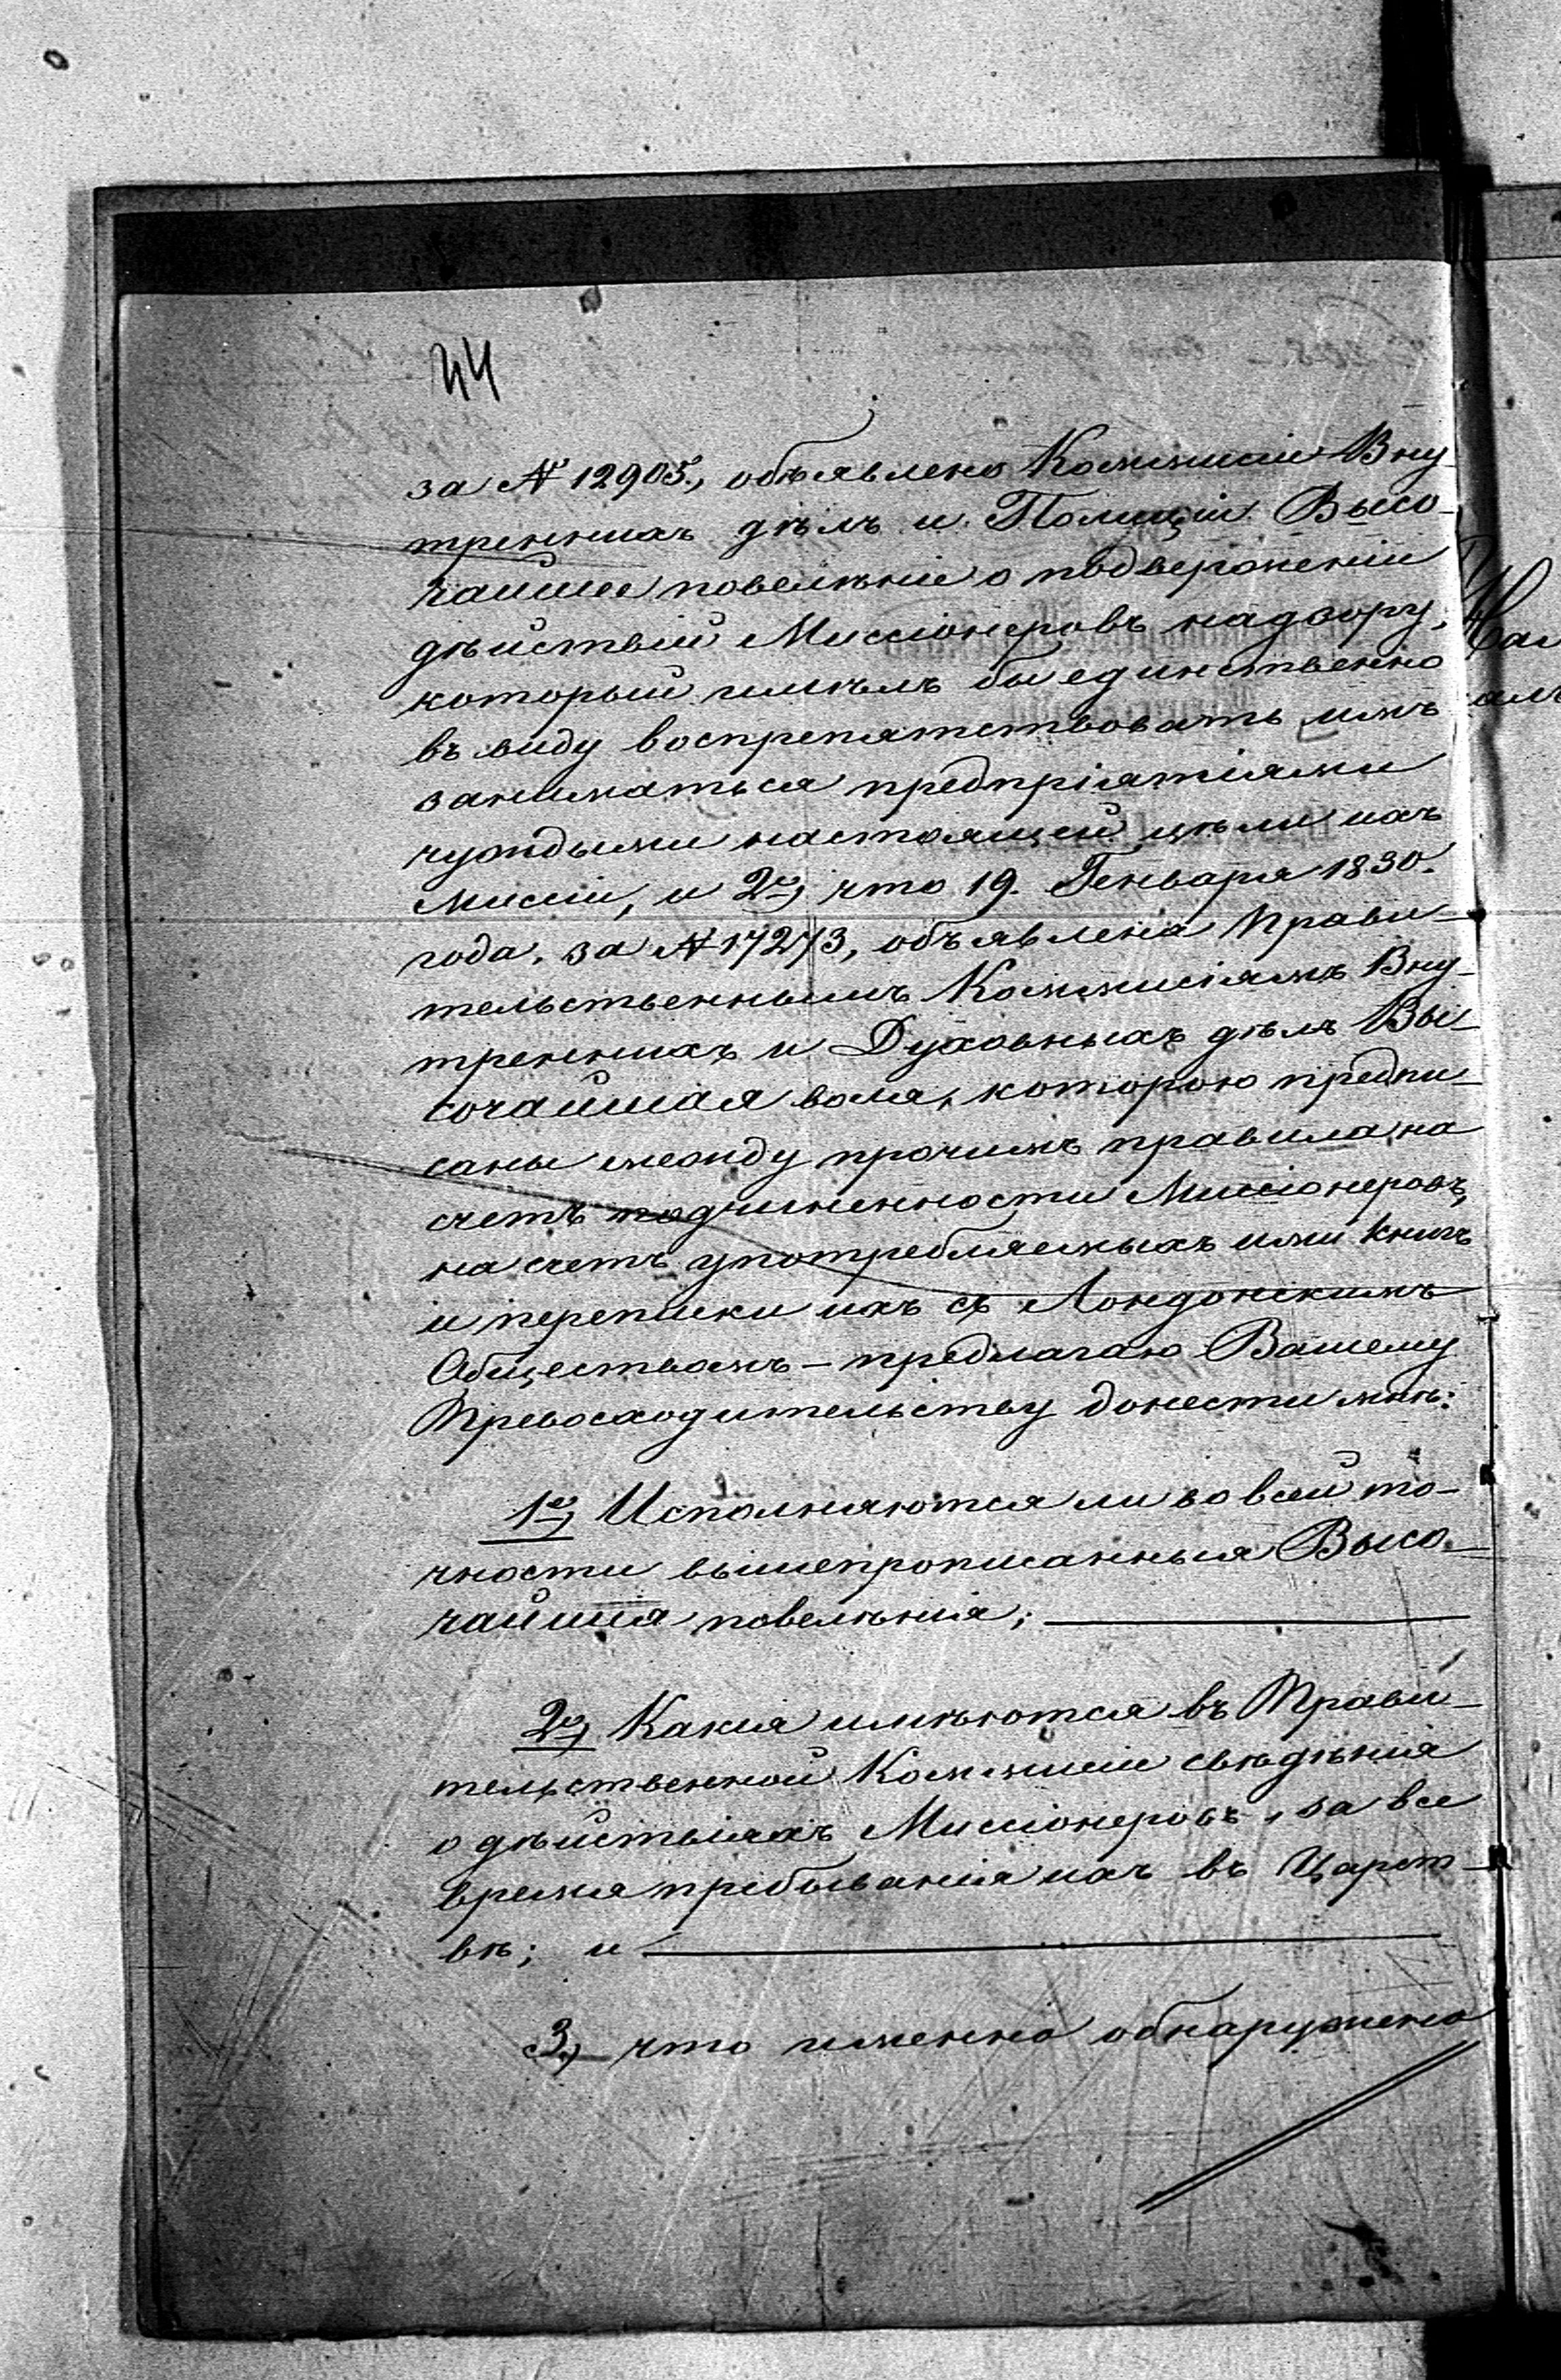 44
за № 12905, объявлено Коммисіи Вну-
треннихъ дѣлъ и Полиціи Высо-
чайшее повелѣніе о подверженіи
дѣйствій Миссіонеровъ надзору,
который имѣлъ бы единственно
въ виду воспрепятствовать имъ
заниматься предпріятіями
чуждыми настоящей цѣли ихъ
Миссіи, и 2е) что 19. Генваря 1830.
года. за № 17273, объявлена Прави-
тельственнымъ Коммисіямъ Вну-
треннихъ и Духовныхъ дѣлъ Вы-
сочайшая воля, которою предпи-
саны между прочимъ правила на
счетъ подчиненности Миссіонеровъ,
на счетъ употребляемыхъ ими книгъ
и переписки ихъ съ Лондонскимъ
Обществомъ – предлагаю Вашему
Превосходительству донести мнѣ:
1е) Исполняются ли во всей то-
чности вышепрописанныя Высо-
чайшія повелѣнія;
2е) Какія имѣются въ Прави-
тельственной Коммисіи свѣдѣнія
о дѣйствіяхъ Миссіонеровъ, за все
время пребыванія ихъ въ Царст-
вѣ; и
3.) что именно обнаружено